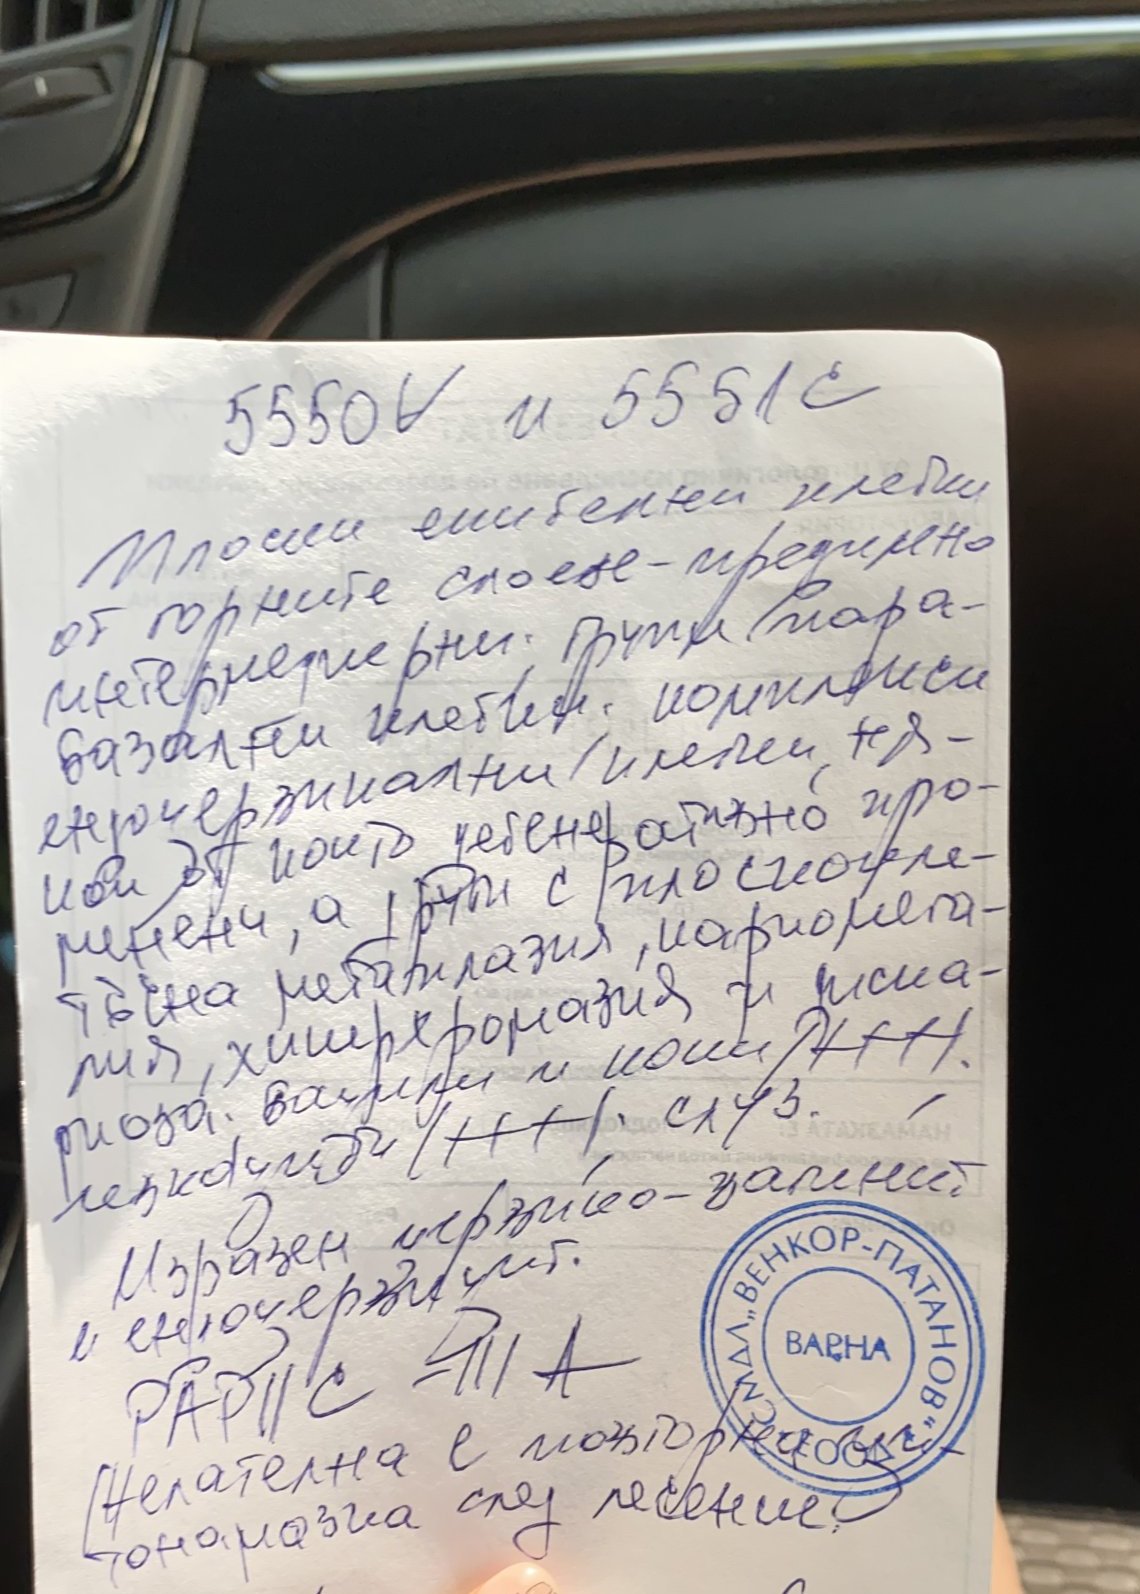 5550V и 5551С
Плоски епителни клетки
от горните слоеве - предимно
интермедиерни. Групи пара-
базални клетки. комплекси
ендоцервикални клетки, ня-
кои от които дегенеративно про-
менени, а други с плоскокле-
тъчна метаплазия, кариомега-
лия, хиперхромазия и диска-
риоза. Бацили и коки /+++/.
левкоцити /+++/. слуз.
Изразен цервико-вагинит
и ендоцервицит.
PAP II C - III A
/Желателна е повторна ци-
тонамазка след лечение/
СМДЛ „ВЕНКОР-ПАТАНОВ“ ЕООД
ВАРНА